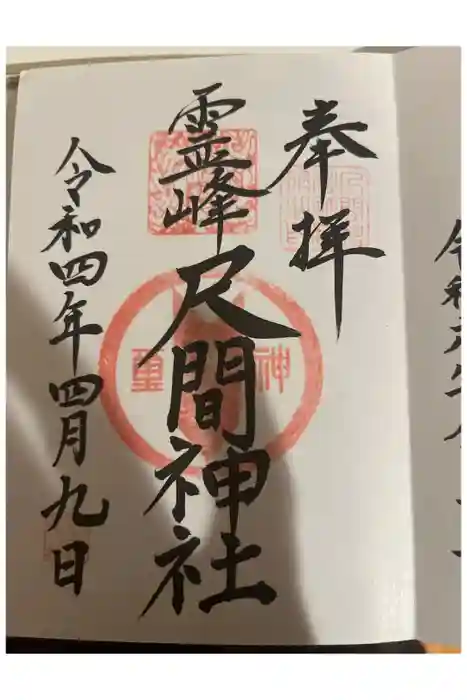 奉拝
霊峰
尺間神社
神璽
令和四年四月九日